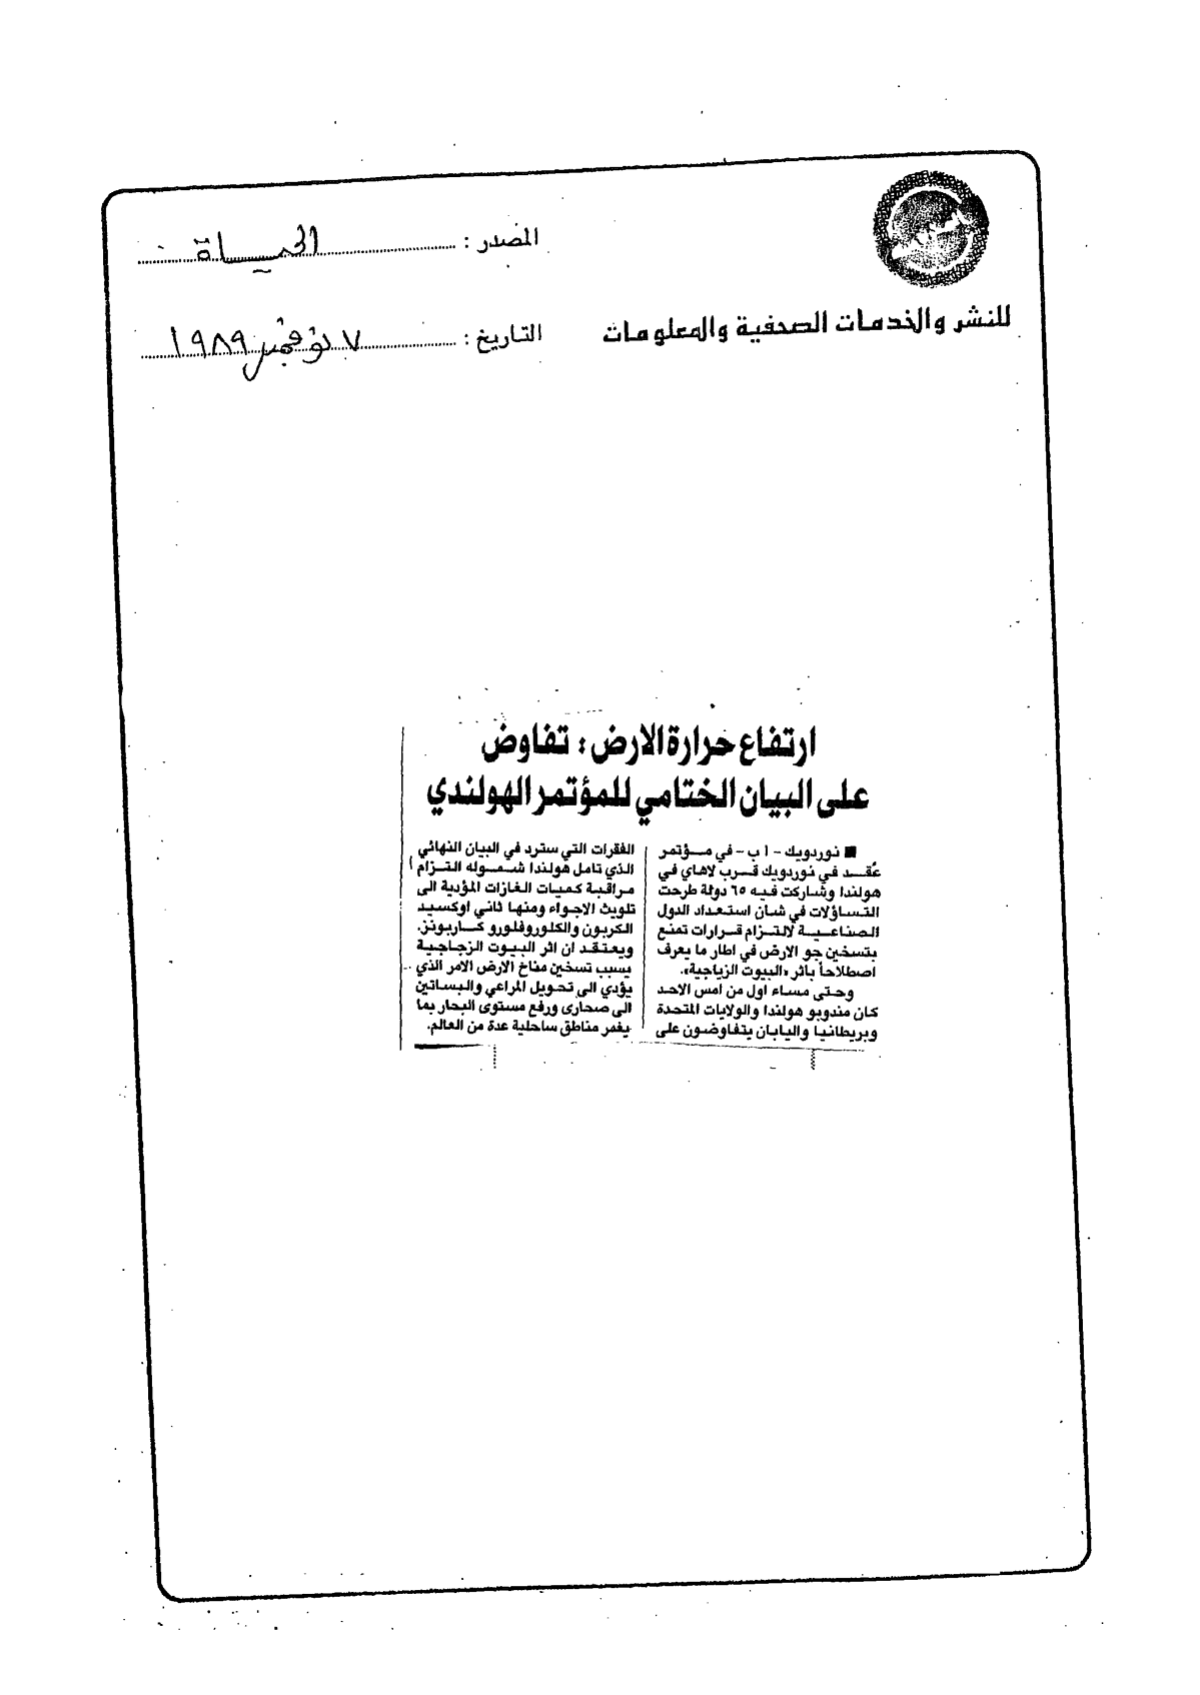 المصدر : الحياة
للنشر والخدمات الصحفية والمعلومات
التاريخ : ٧ نوفمبر ١٩٨٩
ارتفاع حرارة الارض : تفاوض
على البيان الختامي للمؤتمر الهولندي
■ نوردويك - ا ب - في مؤتمر
عُقد في نوردويك قرب لاهاي في
هولندا وشاركت فيه ٦٥ دولة طرحت
التساؤلات في شان استعداد الدول
الصناعية لالتزام قرارات تمنع
بتسخين جو الارض في اطار ما يعرف
اصطلاحاً باثر «البيوت الزياجية».
وحتى مساء اول من امس الاحد
كان مندوبو هولندا والولايات المتحدة
وبريطانيا واليابان يتفاوضون على
الفقرات التي سترد في البيان النهائي
الذي تامل هولندا شموله التزام
مراقبة كميات الغازات المؤدية الى
تلويث الاجواء ومنها ثاني اوكسيد
الكربون والكلوروفلورو كاربونز.
ويعتقد ان اثر البيوت الزجاجية
يسبب تسخين مناخ الارض الامر الذي
يؤدي الى تحويل المراعي والبساتين
الى صحارى ورفع مستوى البحار بما
يغمر مناطق ساحلية عدة من العالم.